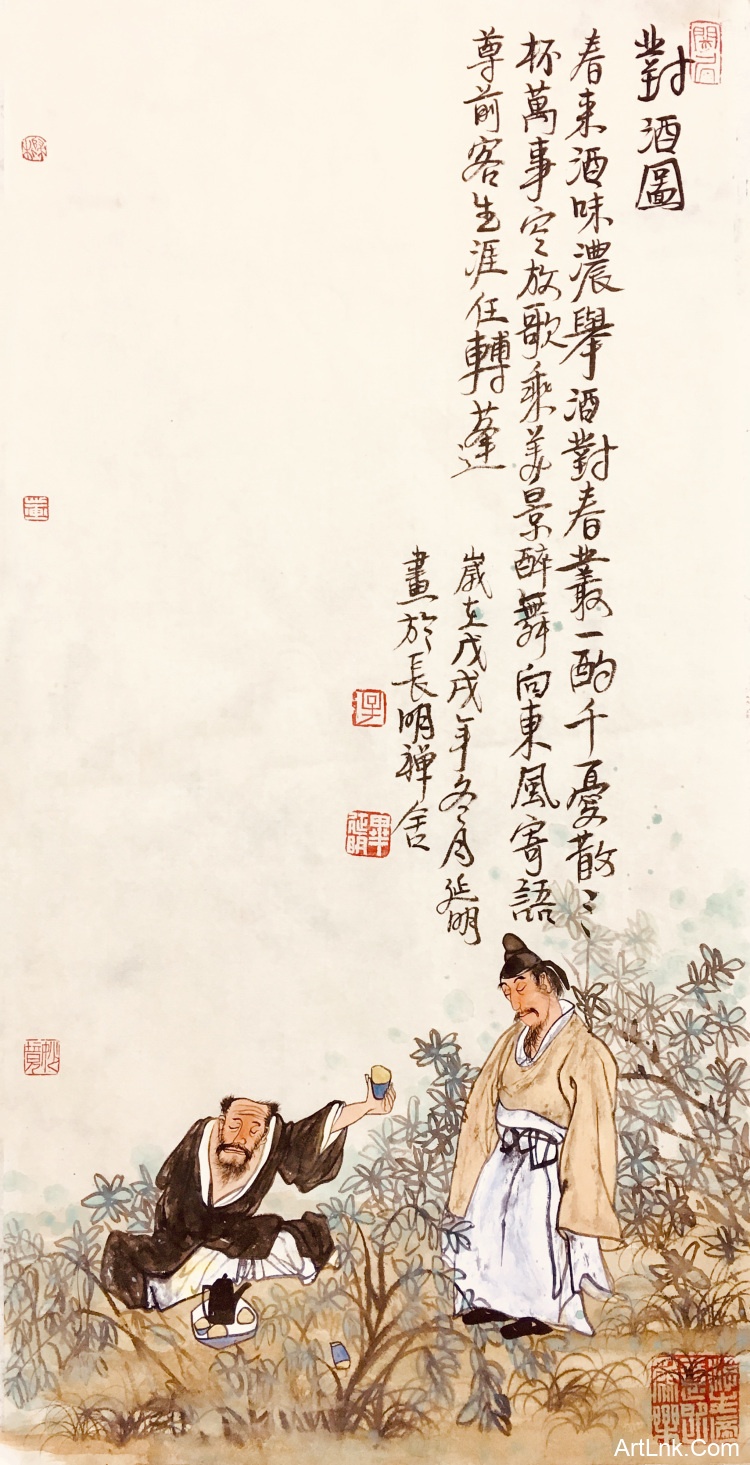 對酒圖
春来酒味濃舉酒對春叢一酌千憂散三
杯萬事空放歌乘美景醉舞向東風寄語
尊前客生涯任轉蓬
歲在戊戌年冬月延明
畫於長明禅舍
畢延明
ArtLnk.Com